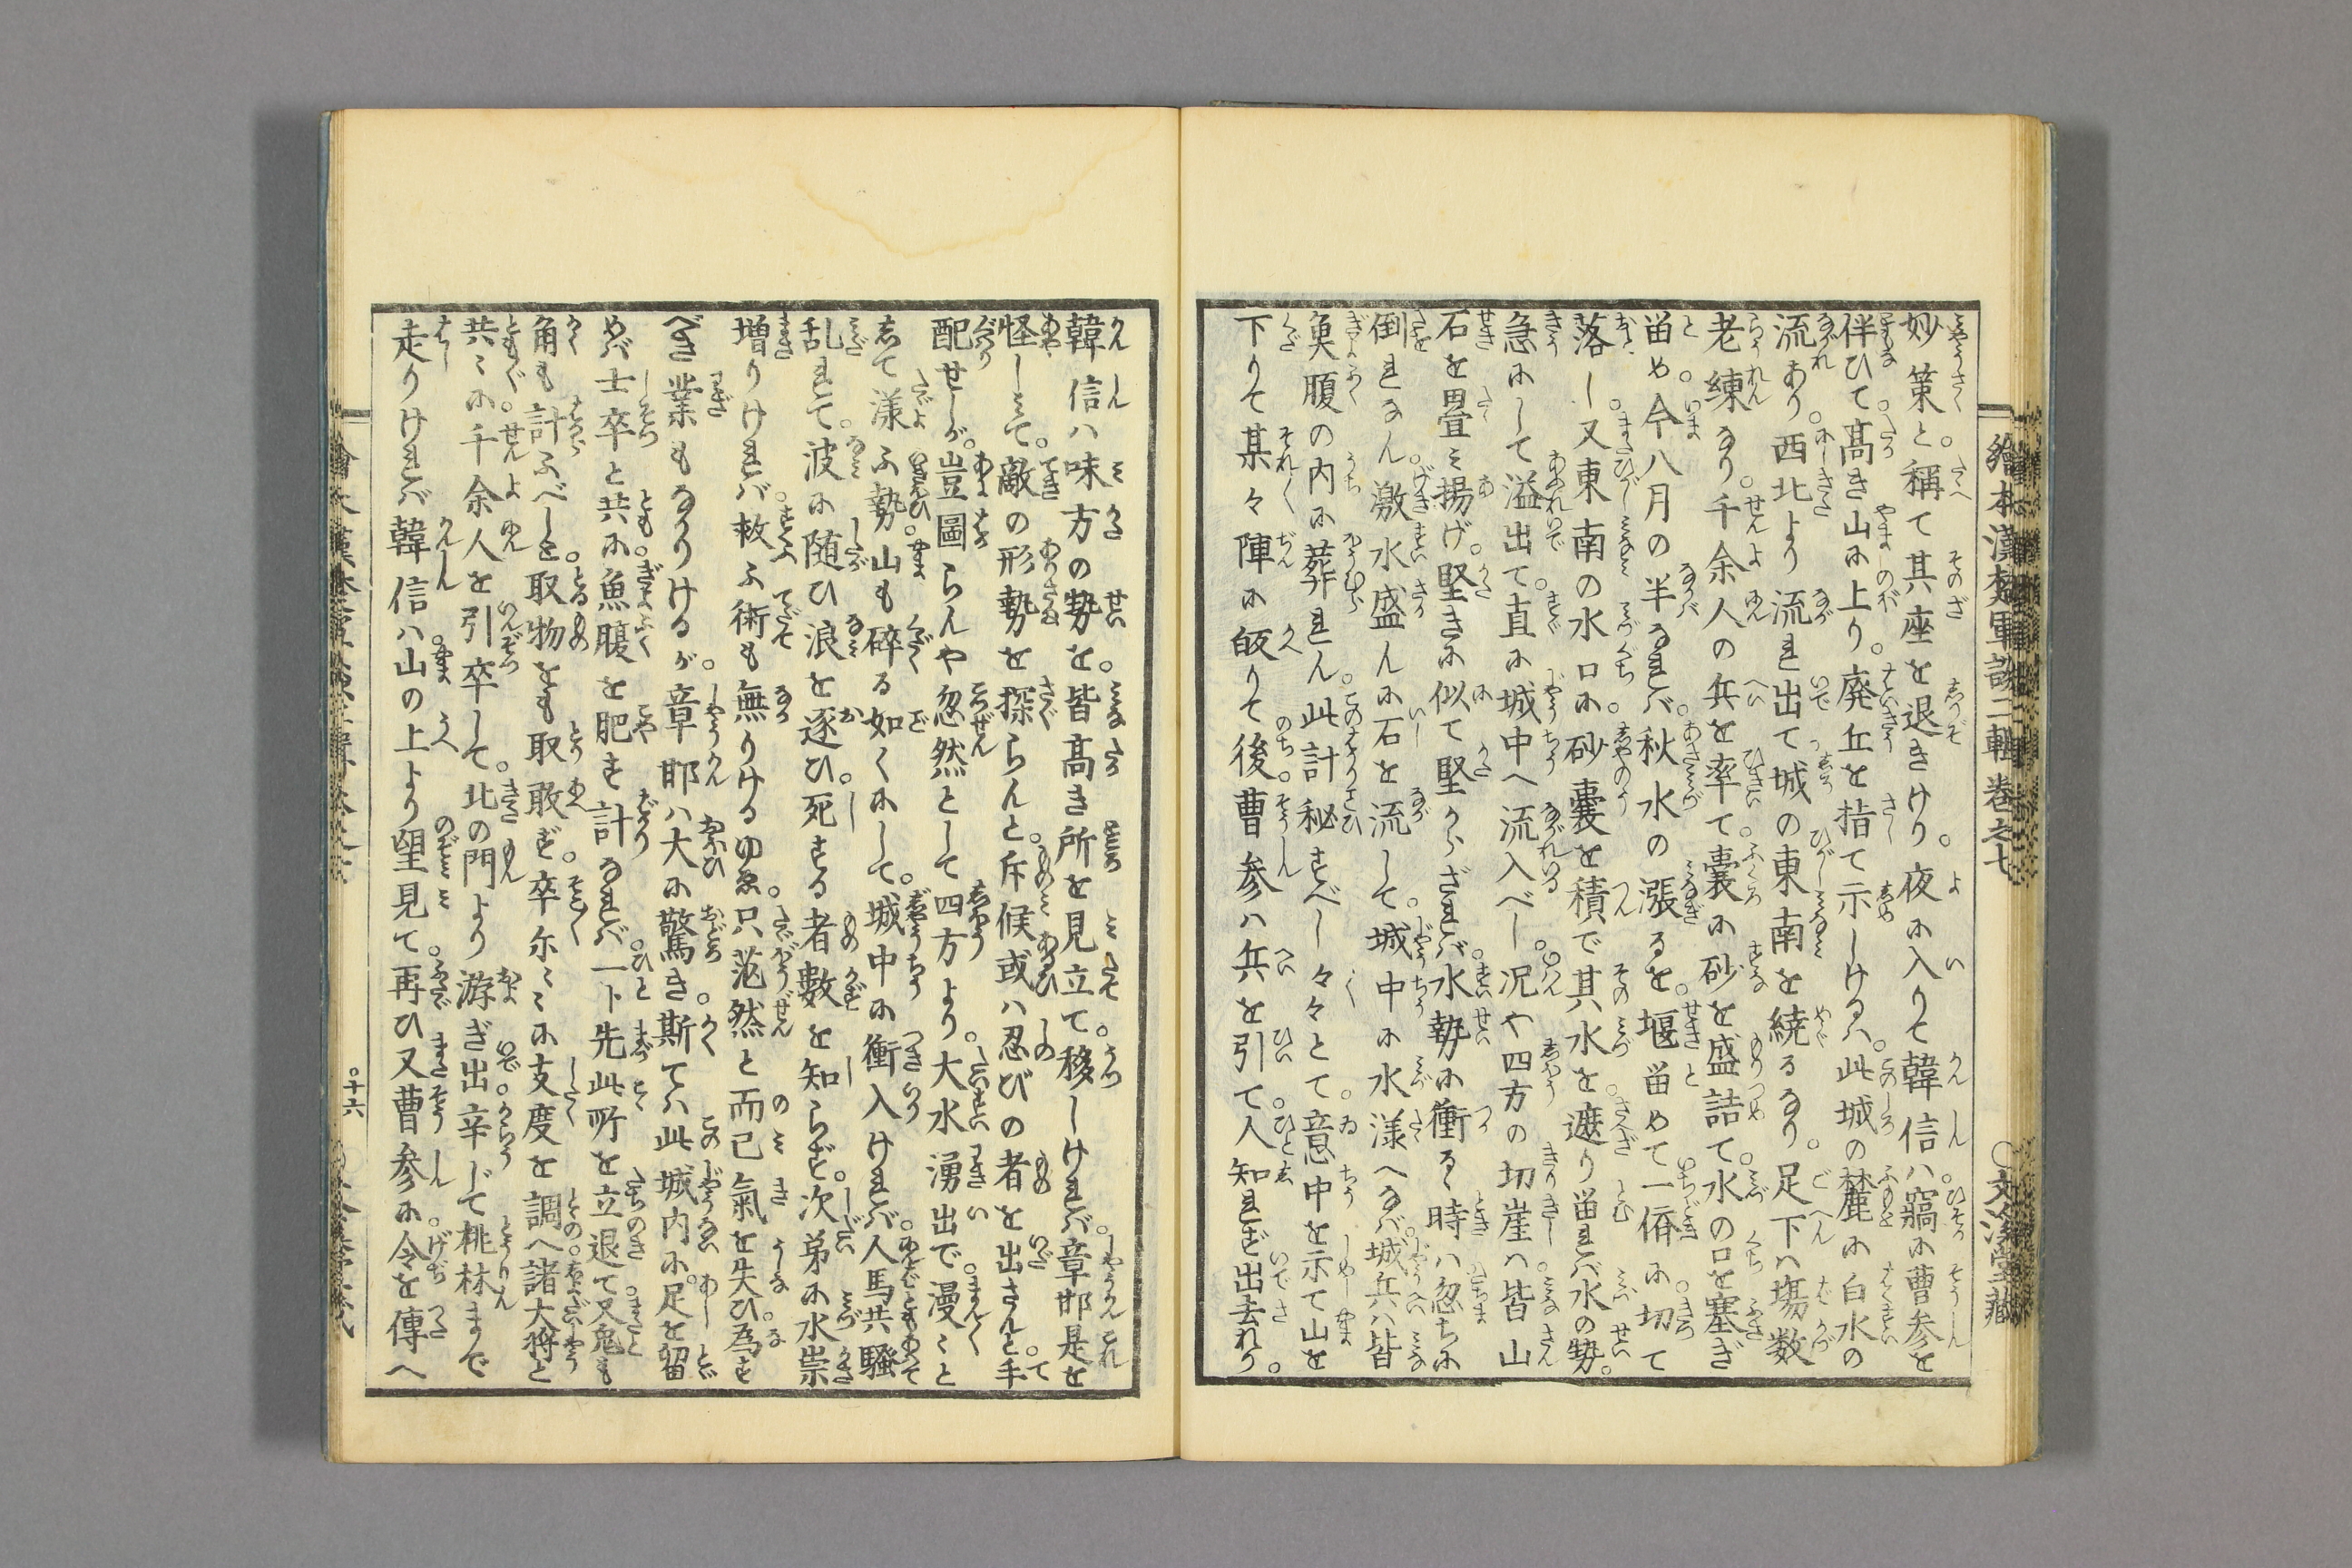 繪本漢楚軍談二輯卷之七 ○文溪堂藏
妙策と。稱て其座を退きけり。夜に入りて韓信ハ。竊に曹参を
伴ひて。髙き山に上り。廃丘を指て示しけるハ。此城の麓に白水の
流あり。西北より流れ出て城の東南を繞るなり。足下ハ塲数
老練なり。千余人の兵を率て。嚢に砂を盛詰て。水の口を塞ぎ
畄め。今八月の半なれバ。秋水の漲るを。堰畄めて一偦に。切て
落し。又東南の水口に。砂嚢を積で其水を。遮り畄れバ水の勢。
急にして溢出て。直に城中へ流入べし。况や四方の切崖ハ。皆山
石を畳ミ揚げ。堅きに似て堅からざれバ。水勢に衝るゝ時ハ忽ちに
倒れなん。激水盛んに石を流して。城中に水漾へなバ。城兵ハ皆
奥腹の内に葬れん。此計秘すべし々々とて。意中を示て山を
下りて某々陣に皈りて後。曹参ハ兵を引て。人知れず出去れり。
韓信ハ味方の勢を。皆髙き所を見立て。移しけれバ。章邯是を
怪しミて。敵の形勢を探らんと。斥候或ハ忍びの者を出さんと。手
配せしが。豈圖らんや忽然として四方より。大水湧出で。漫ミと
志て漾ふ勢。山も碎る如くにして。城中に衝入けれバ。人馬共騒
乱れて。波に随ひ浪を逐ひ。死する者數を知らず。次弟に水祟
増りけれバ。救ふ術も無りけるゆゑ。只茫然と而已氣を失ひ。為す
べき業もなかりけるが。章邯ハ大に驚き。斯てハ此城内に。足を留
めバ士卒と共に。魚腹を肥す計なれバ。一ト先此所を立退て。又兎も
角も計ふべしと。取物をも取敢ず。卒尓ミに支度を調へ。諸大將と
共ミに。千余人を引卒して。北の門より游ぎ出。辛じて桃林まで
走りけれバ韓信ハ。山の上より望見て。再ひ又曹参に。令を傳へ
○十六